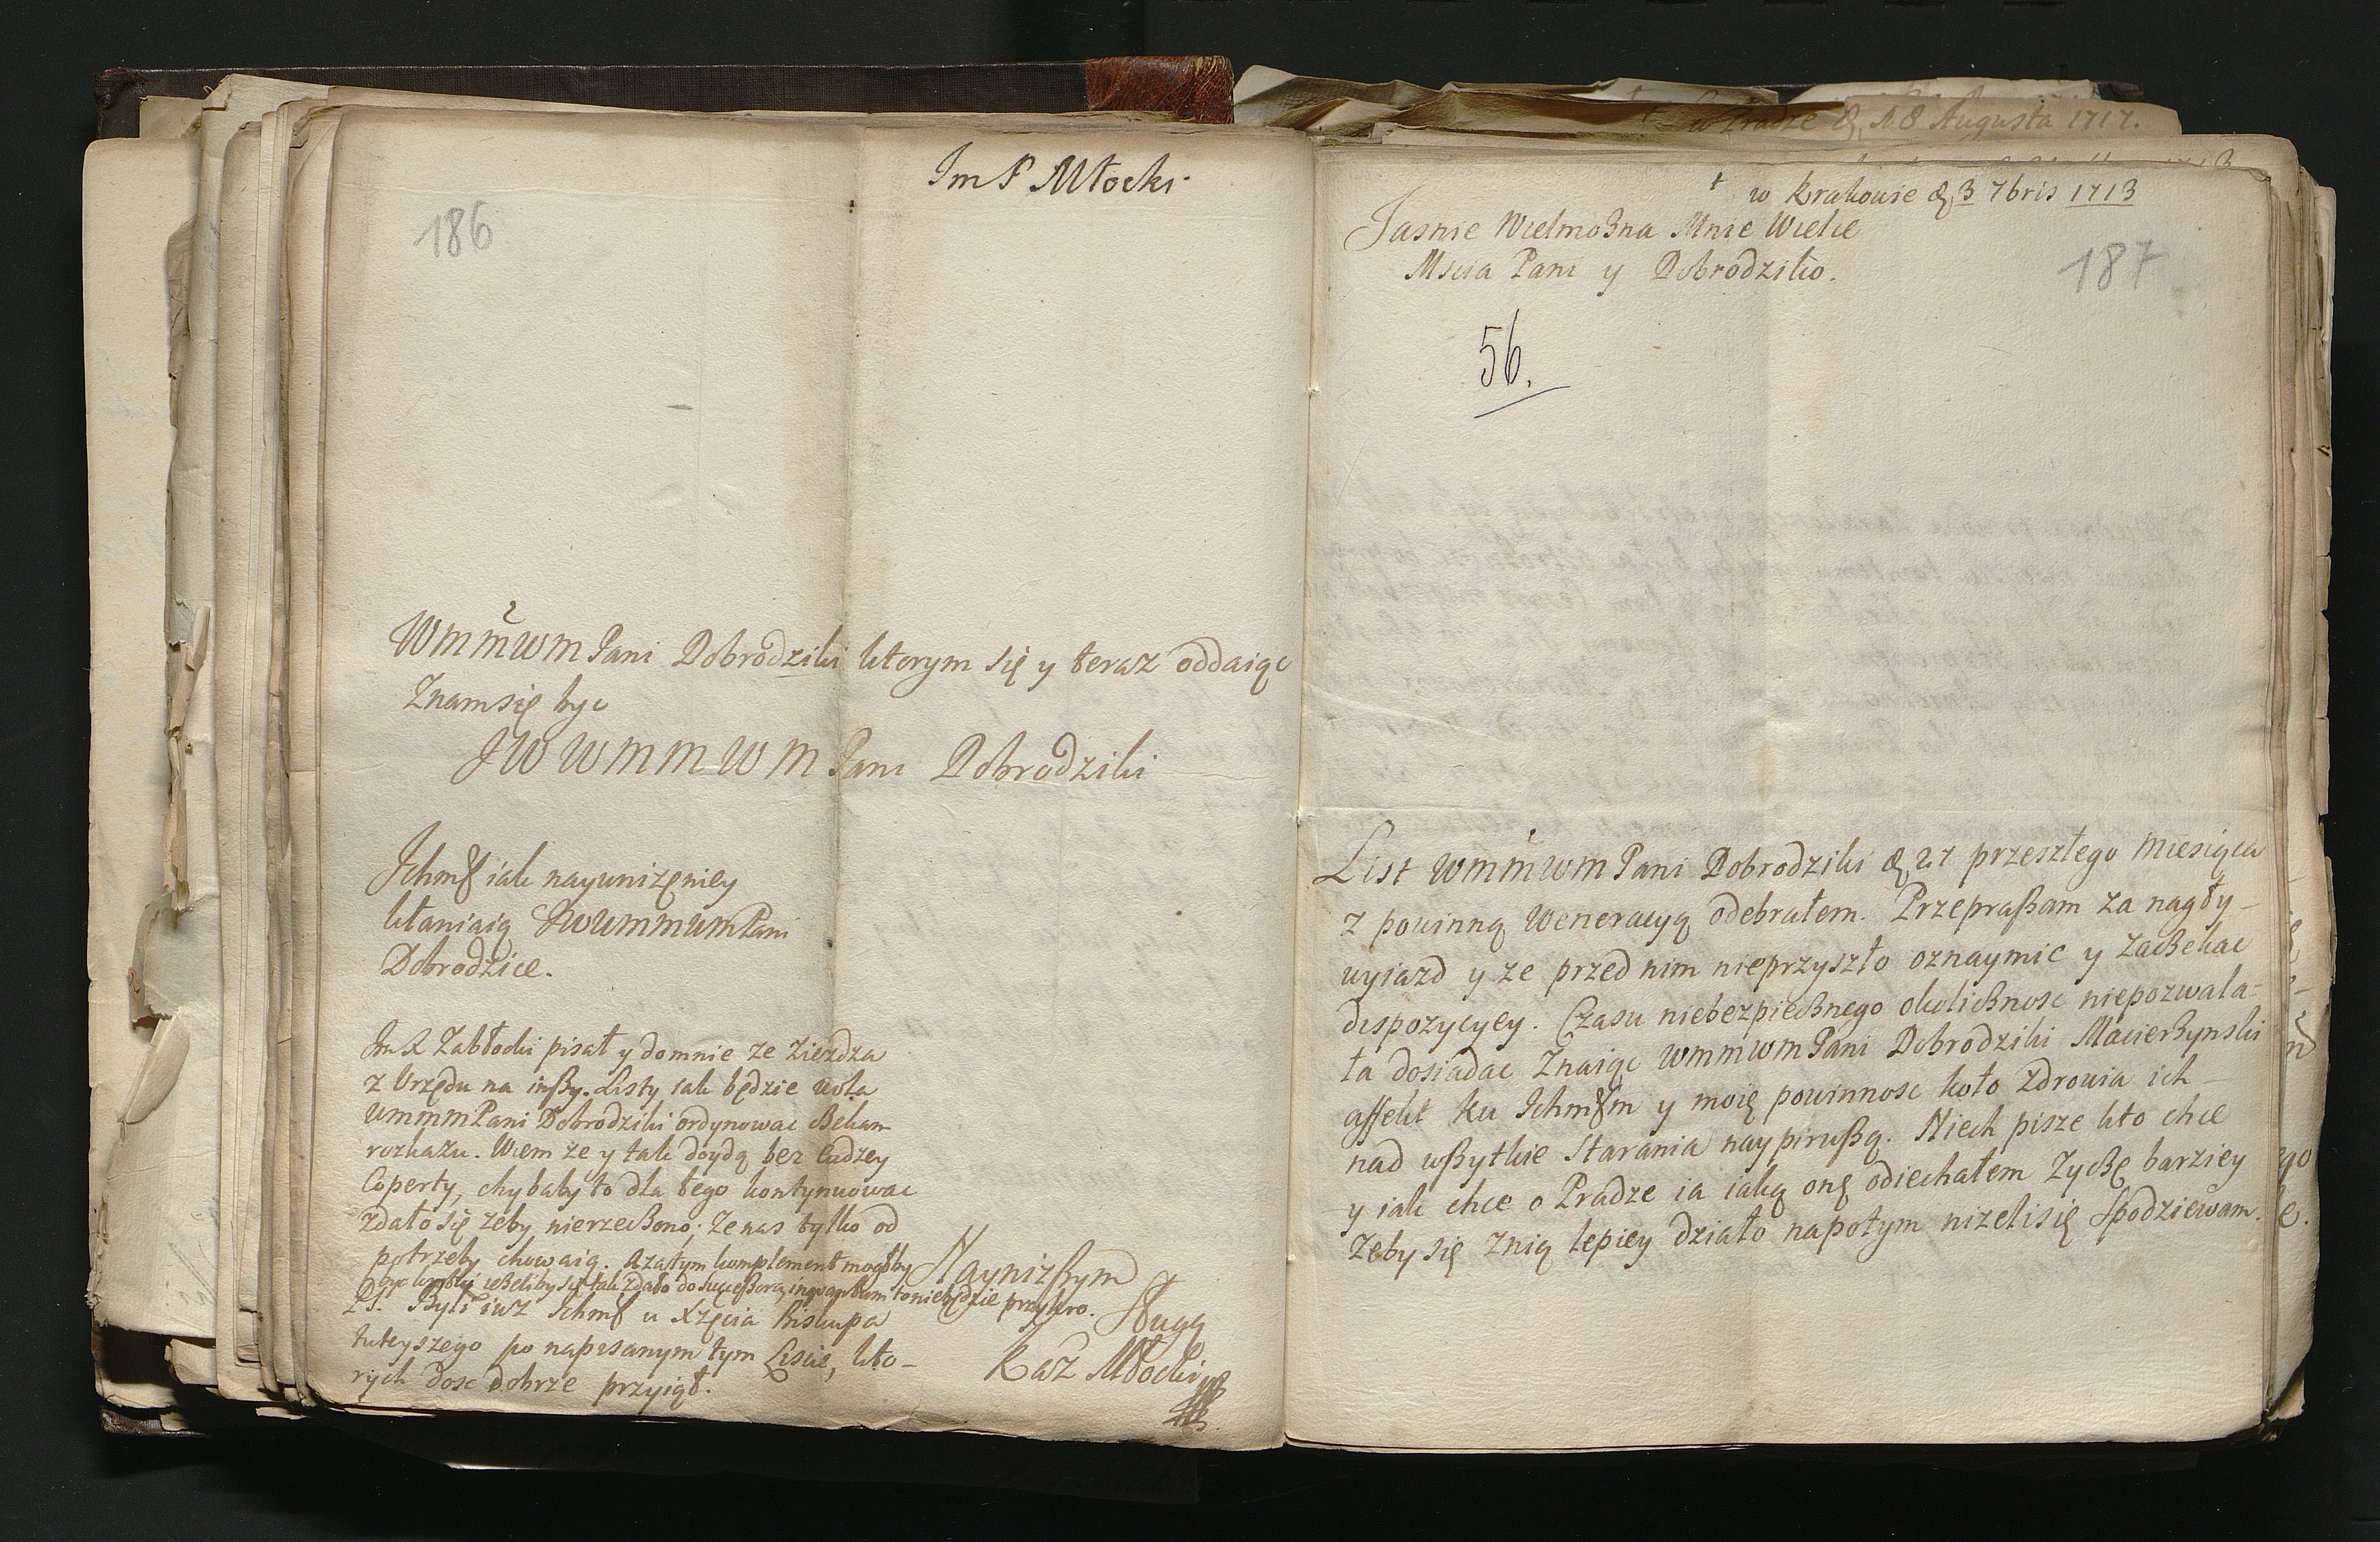 Im P Młocki
186
WmmWm Pani Dobrodziki ktorym się y teraz oddaiąc
Znam się byc
JWWmmWm Pani Dobrodziki
Ichmć iak nayunizęniey
kłaniaią JWWmmWm Pani
Dobrodzice.
Im P Zabłocki pisał y domnie ze Ziezdza
z Urzędu na inßy. Listy iak będzie wola
Wmmm Pani Dobrodziki ordynowac ßekam
rozkazu. Wiem ze y tak doydą bez ludzey
Coperty, chybaby to dla tego kontynuowac
zdało się zeby nierzeßono; Ze nas tylko od
potrzeby chowaią. Azatym komplement mogłby
byc krotki ieżeliby się tak zdało do to niebędzie przykro.
PS. Byli iuz Ichmć u Xzęcia Biskupa
tuteyszego po napisanym tym Liscie, kto-
rych dosc dobrze przyiął.
Nayniżßym
Sługą
Kaz Młocki
w Pradze d. 18 Augusta 1717.
w Krakowie d. 3 7bris 1713
Jasnie Wielmoßna Mnie Wielce
Mscia Pani y Dobrodziko.
187
56.
List WmmWm Pani Dobrodziki d. 27 przeszłego Miesiąca
z powinną Weneracyą odebrałem. Przepraßam za nagły
wyiazd y ze przed nim nieprzyszło oznaymic y zaßekac
dispozycyey. Czasu niebezpießnego okolißnosc niepozwala-
ła dosiadac Znaiąc WmmWm Pani Dobrodziki Macierżynski
affekt ku Ichmćm y moię powinnosc koło Zdrowia ich
nad wßytkie Starania naypirwßą. Niech pisze kto chce
y iak chce o Pradze ia iaką onę odiechałem Zyczę barziey
Zeby się znią lepiey działo napotym nizelisię Spodziewam.